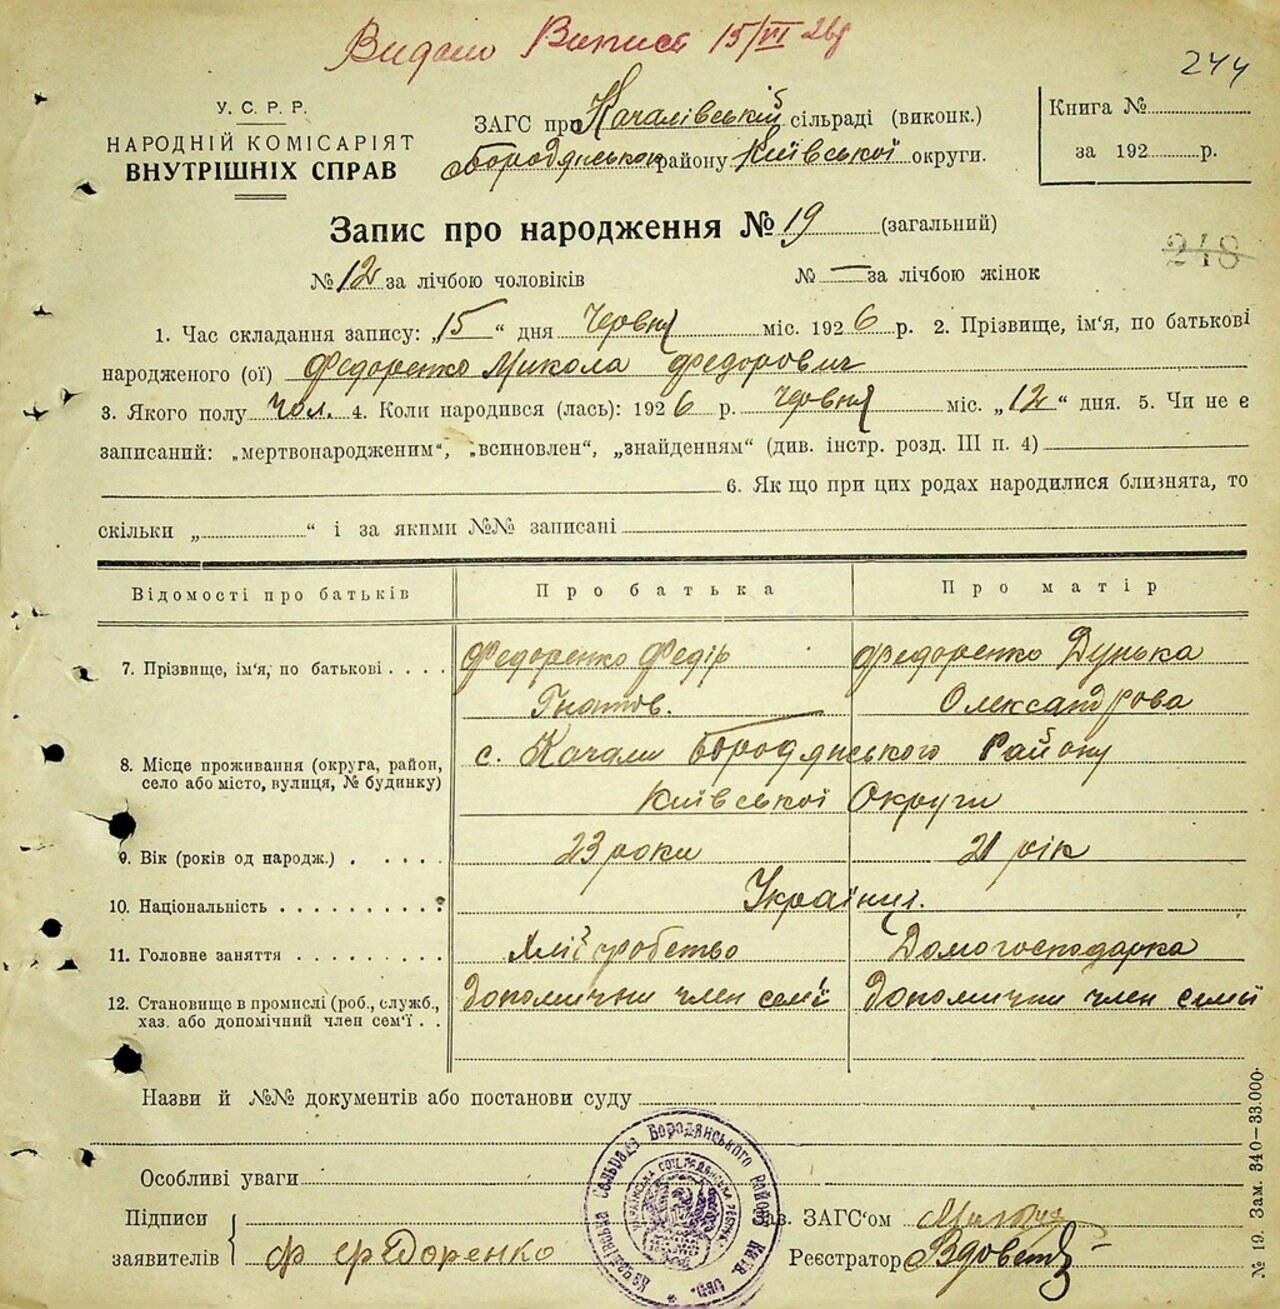 Видано Випись 15/VI 26р
244
У. С. Р. Р.
НАРОДНІЙ КОМІСАРІЯТ
ВНУТРІШНІХ СПРАВ
ЗАГС при Качалівській сільраді (виконк.)
Бородянськом району Київської округи.
Книга №
за 192 р.
Запис про народження № 19 (загальний)
248
№ 12 за лічбою чоловіків № — за лічбою жінок
1. Час складання запису: „15“ дня Червня міс. 1926 р. 2. Прізвище, ім'я, по батькові
народженого (ої) Федоренко Микола Федорович
3. Якого полу чол. 4. Коли народився (лась): 1926 р. червня міс. „12“ дня. 5. Чи не є
записаний: „мертвонародженим“, „всиновлен“, „знайденням“ (див. інстр. розд. III п. 4)
6. Якщо при цих родах народилися близнята, то
скільки „ “ і за якими №№ записані
Відомості про батьків Про батька Про матір
7. Прізвище, ім'я, по батькові . . . . Федоренко Федір Федоренко Дунька
Гнатов. Олександрова
8. Місце проживання (округа, район, с. Качали Бородянського Району
село або місто, вулиця, № будинку) Київської Округи
9. Вік (років од народж.) . . . . . 23 роки 21 рік
10. Національність . . . . . . . . . . Українці.
11. Головне заняття . . . . . . . . . Хліборобство Домогосподарка
12. Становище в промислі (роб., служб., допомични член семї допомични член семьї
хаз. або допомічний член сем'ї . .
Назви й №№ документів або постанови суду
Особливі уваги
Підписи Зав. ЗАГС'ом
заявителів Ф Федоренко Реєстратор Вдовет
Качалівська Сельрада Бородянського Району Київ. Окр.
№ 19. Зам. 340—33.000.